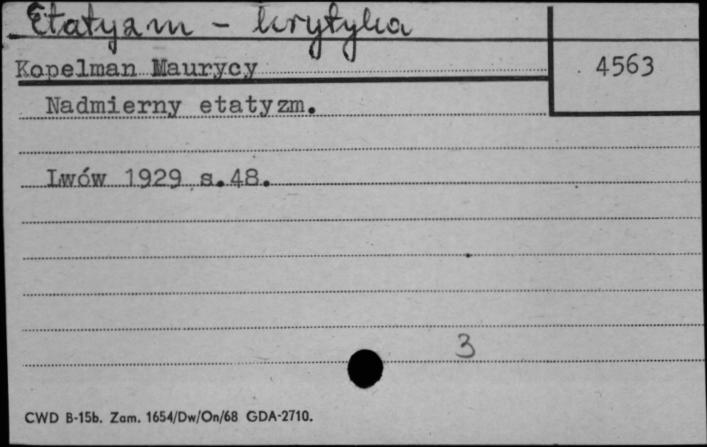 Etatyzm - krytyka
Kopelman Maurycy
4563
Nadmierny etatyzm.
Lwów 1929 s.48.
3
CWD B-15b. Zam. 1654/Dw/On/68 GDA-2710.